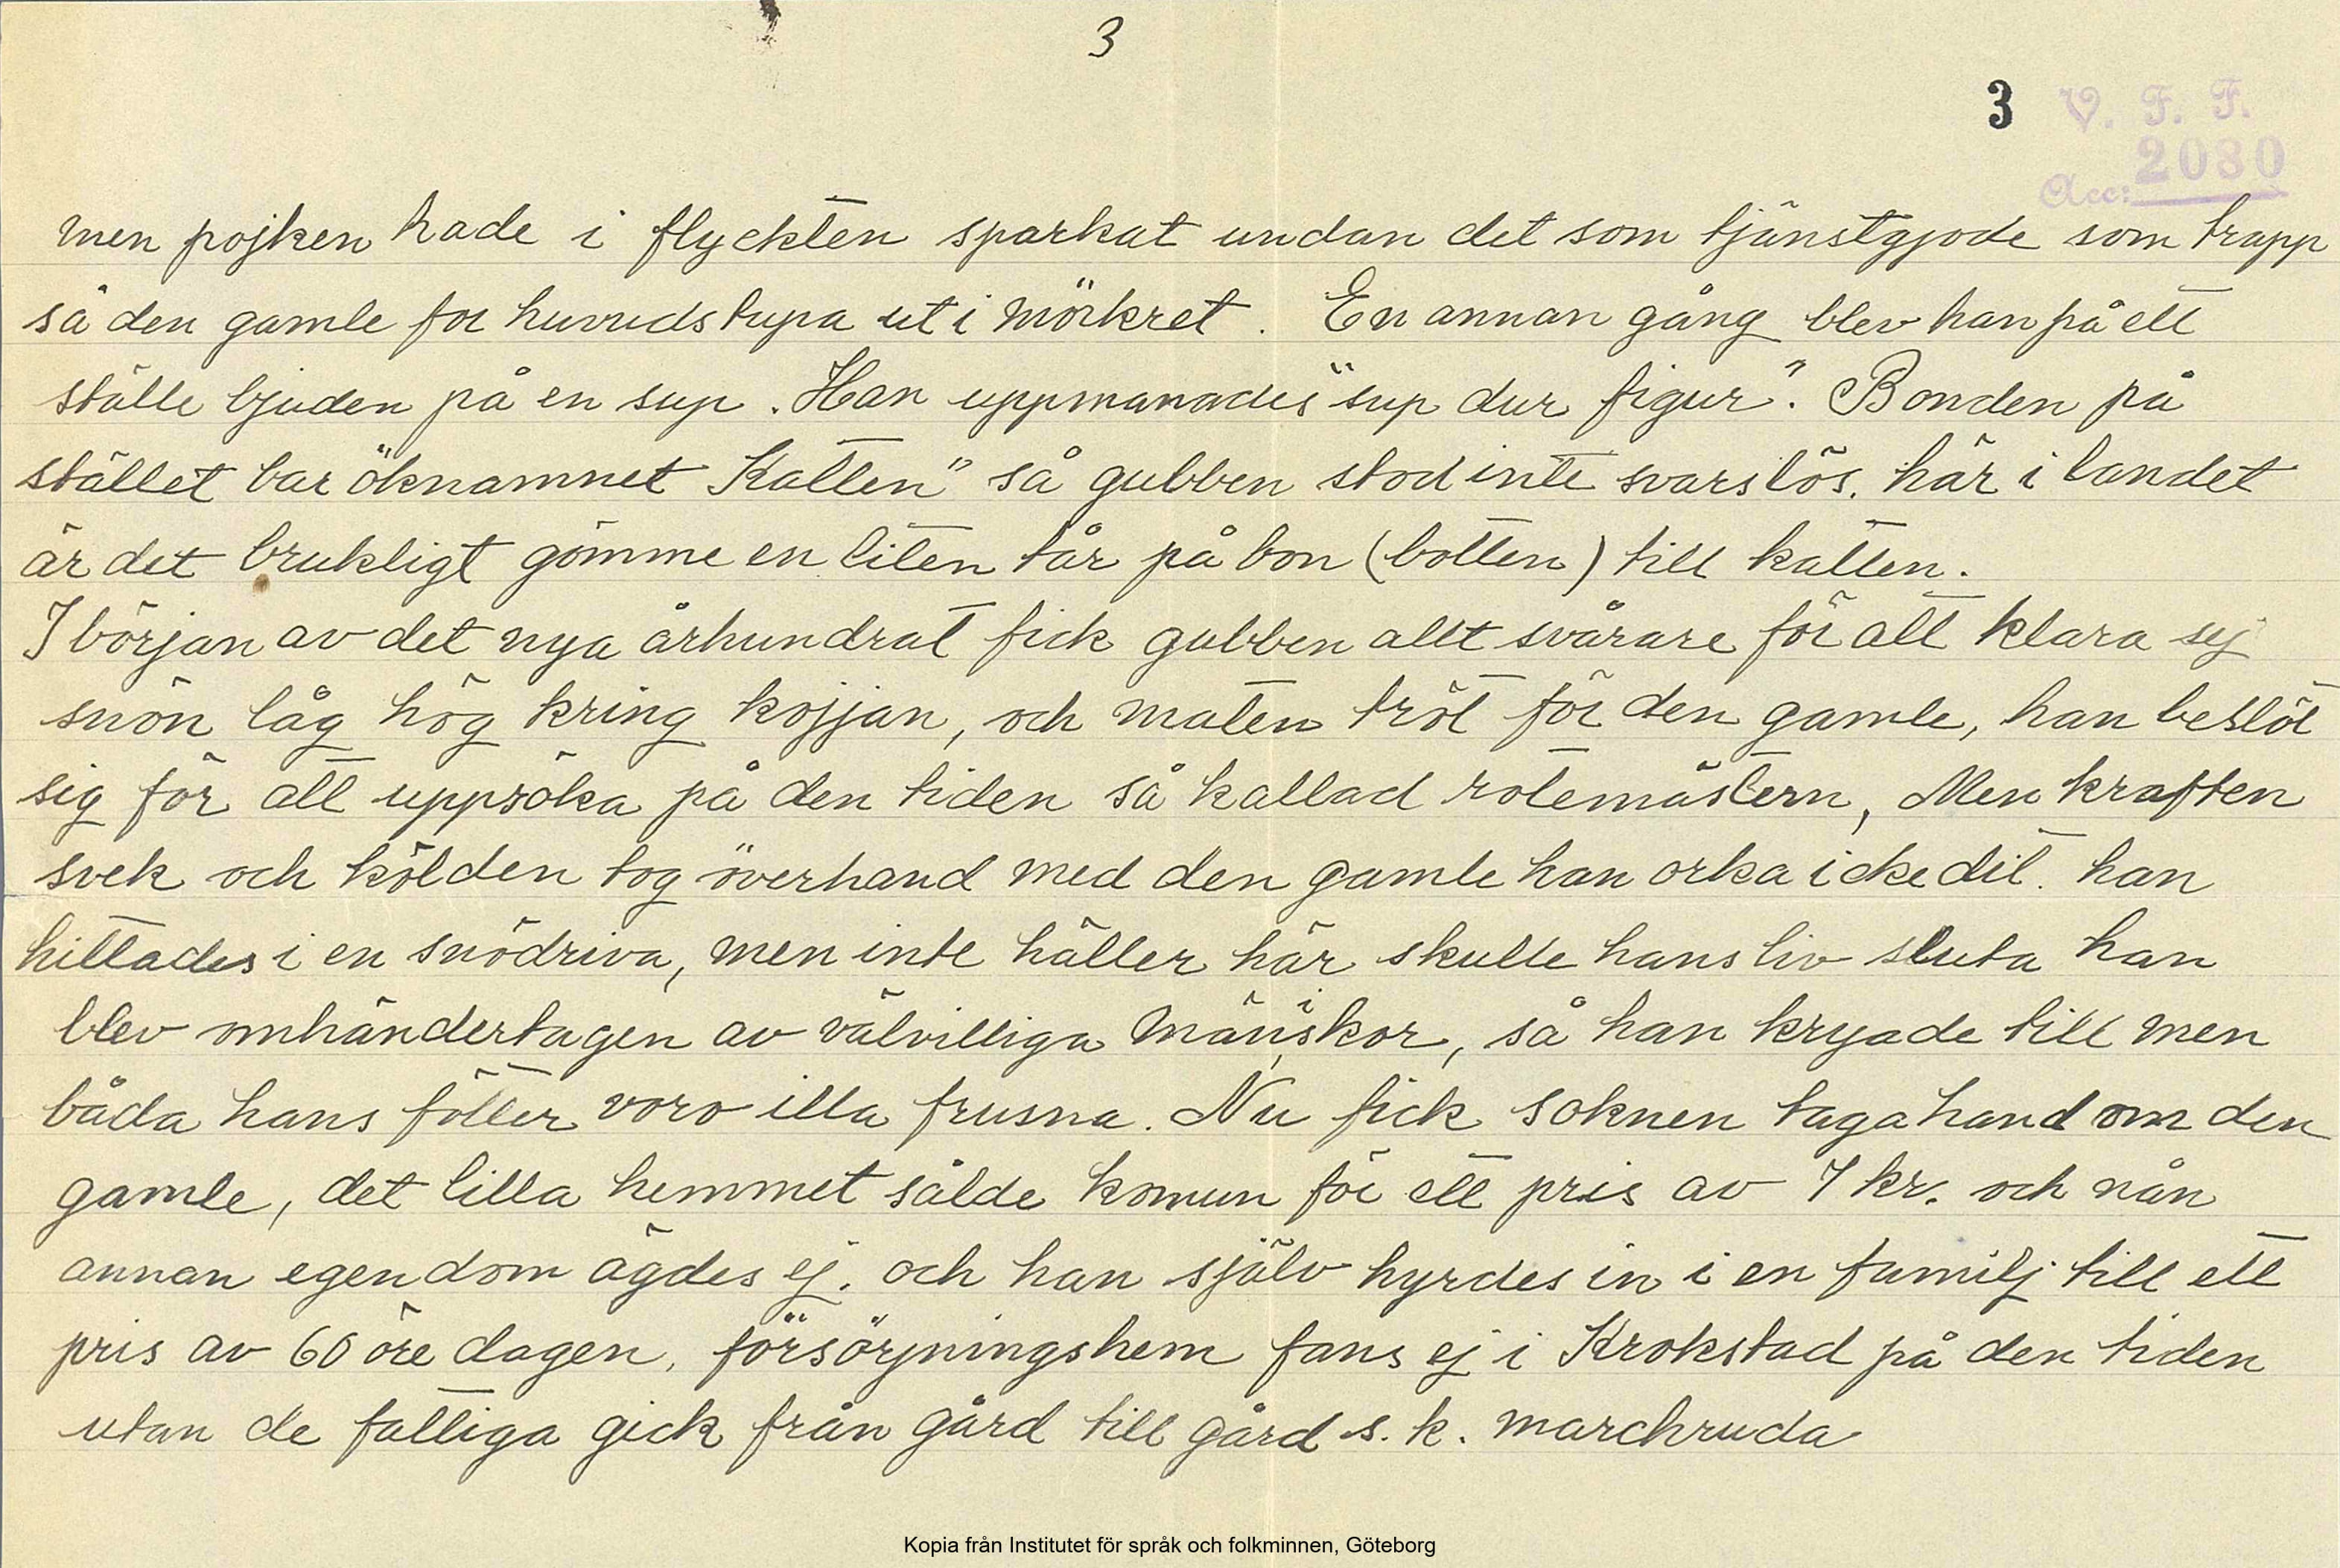 3
3
V. F. F.
Acc: 2080
men pojken hade i flyckten sparkat undan det som tjänstgjode som trapp
så den gamle for huvudstupa ut i mörkret. En annan gång blev han på ett
ställe bjuden på en sup. Han uppmanades "sup dur figur". Bonden på
stället bar öknamnet "Katten" så gubben stod inte svarslös. här i landet
är det brukligt gömme en liten tår på bon (botten) till katten.
I början av det nya århundrat fick gubben allt svårare för att klara sej
snön låg hög kring kojjan, och maten tröt för den gamle, han beslöt
sig för att uppsöka på den tiden så kallad rotemästern, Men kraften
svek och kölden tog överhand med den gamle han orka icke dit. han
hittades i en snödriva, men inte häller här skulle hans liv sluta han
blev omhändertagen av välvilliga mäniskor, så han kryade till men
båda hans fötter voro illa frusna. Nu fick soknen taga hand om den
gamle, det lilla hemmet sålde komun för ett pris av 7 kr. och nån
annan egendom ägdes ej. och han själv hyrdes in i en familj till ett
pris av 60 öre dagen, försörjningshem fans ej i Krokstad på den tiden
utan de fattiga gick från gård till gård s. k. marchruda
Kopia från Institutet för språk och folkminnen, Göteborg